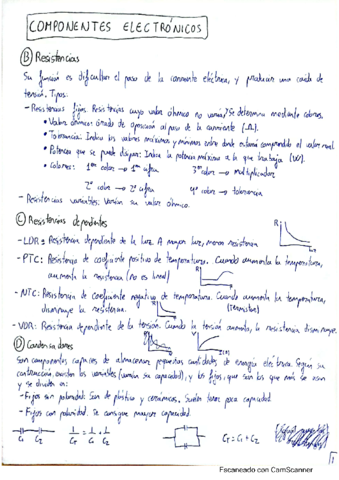 COMPONENTES ELECTRÓNICOS
Ⓑ Resistencias
Su función es dificultar el paso de la corriente eléctrica, y producir una caída de
tensión. Tipos:
- Resistencias fijas. Resistencias cuyo valor óhmico no varía. Se determina mediante colores.
• Valor óhmico: Grado de oposición al paso de la corriente (Ω).
• Tolerancia: Indica los valores máximos y mínimos entre donde estará comprendido el valor real
• Potencia que se puede disipar: Indica la potencia máxima a la que trabaja (W).
• Colores: 1er color → 1ª cifra 3er color → multiplicador
2º color → 2ª cifra 4º color → tolerancia
- Resistencias variables: Varían su valor óhmico.
Ⓒ Resistencias dependientes
- LDR: Resistencia dependiente de la luz. A mayor luz, menos resistencia
- PTC: Resistencia de coeficiente positivo de temperatura. Cuando aumenta la temperatura,
aumenta la resistencia (no es lineal)
- NTC: Resistencia de Coeficiente negativo de temperatura. Cuando aumenta la temperatura,
disminuye la resistencia. (termistor)
- VDR: Resistencia dependiente de la tensión. Cuando la tensión aumenta, la resistencia disminuye.
Ⓓ Condensadores
Son componentes capaces de almacenar pequeñas cantidades de energía eléctrica. Según su
construcción, existen los variables (cambia su capacidad), y los fijos, que son los que más se usan
y se dividen en:
- Fijos sin polaridad: Son de plástico y cerámicos. Suelen tener poca capacidad
- Fijos con polaridad. Se consigue mayor capacidad.
C1 C2 1/CT = 1/C1 + 1/C2 CT = C1 + C2
1
Escaneado con CamScanner